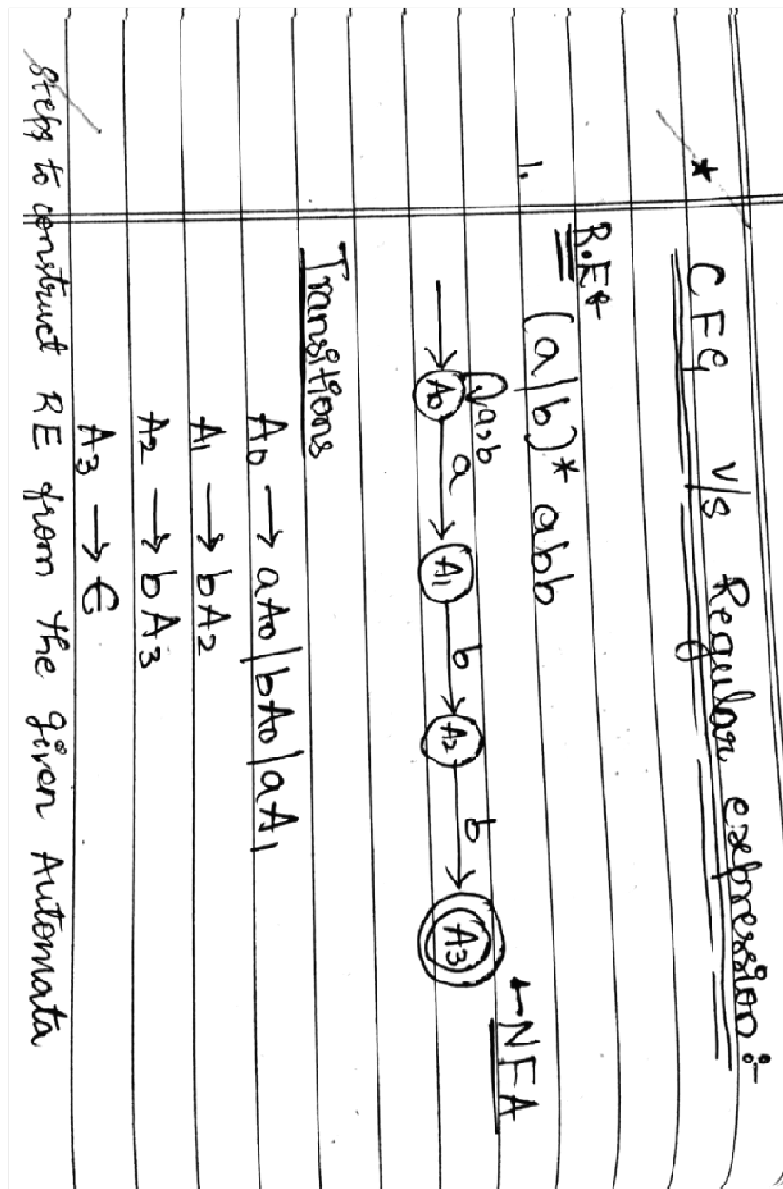 ★ CFG v/s Regular expression :-
1. R.E :-
(a/b)* abb
a,b
A0 a A1 b A2 b A3 ← NFA
Transitions
A0 → aA0 / bA0 / aA1
A1 → bA2
A2 → bA3
A3 → ∈
Steps to construct RE from the given Automata